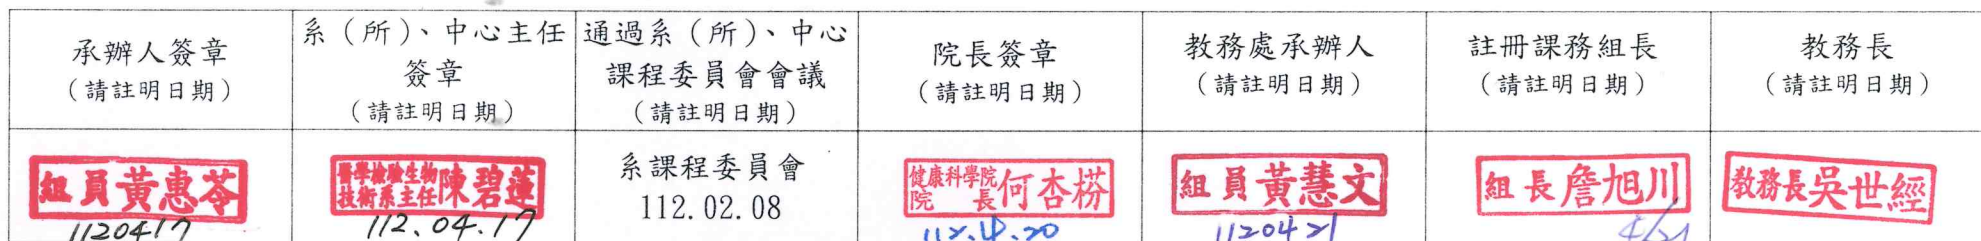 承辦人簽章
(請註明日期)
系(所)、中心主任
簽章
(請註明日期)
通過系(所)、中心
課程委員會會議
(請註明日期)
院長簽章
(請註明日期)
教務處承辦人
(請註明日期)
註冊課務組長
(請註明日期)
教務長
(請註明日期)
組員黃惠苓
1120417
醫學檢驗生物
技術系主任陳碧蓮
112.04.17
系課程委員會
112.02.08
健康科學院
院長何杏棻
112.4.20
組員黃慧文
1120421
組長詹旭川
4/21
教務長吳世經